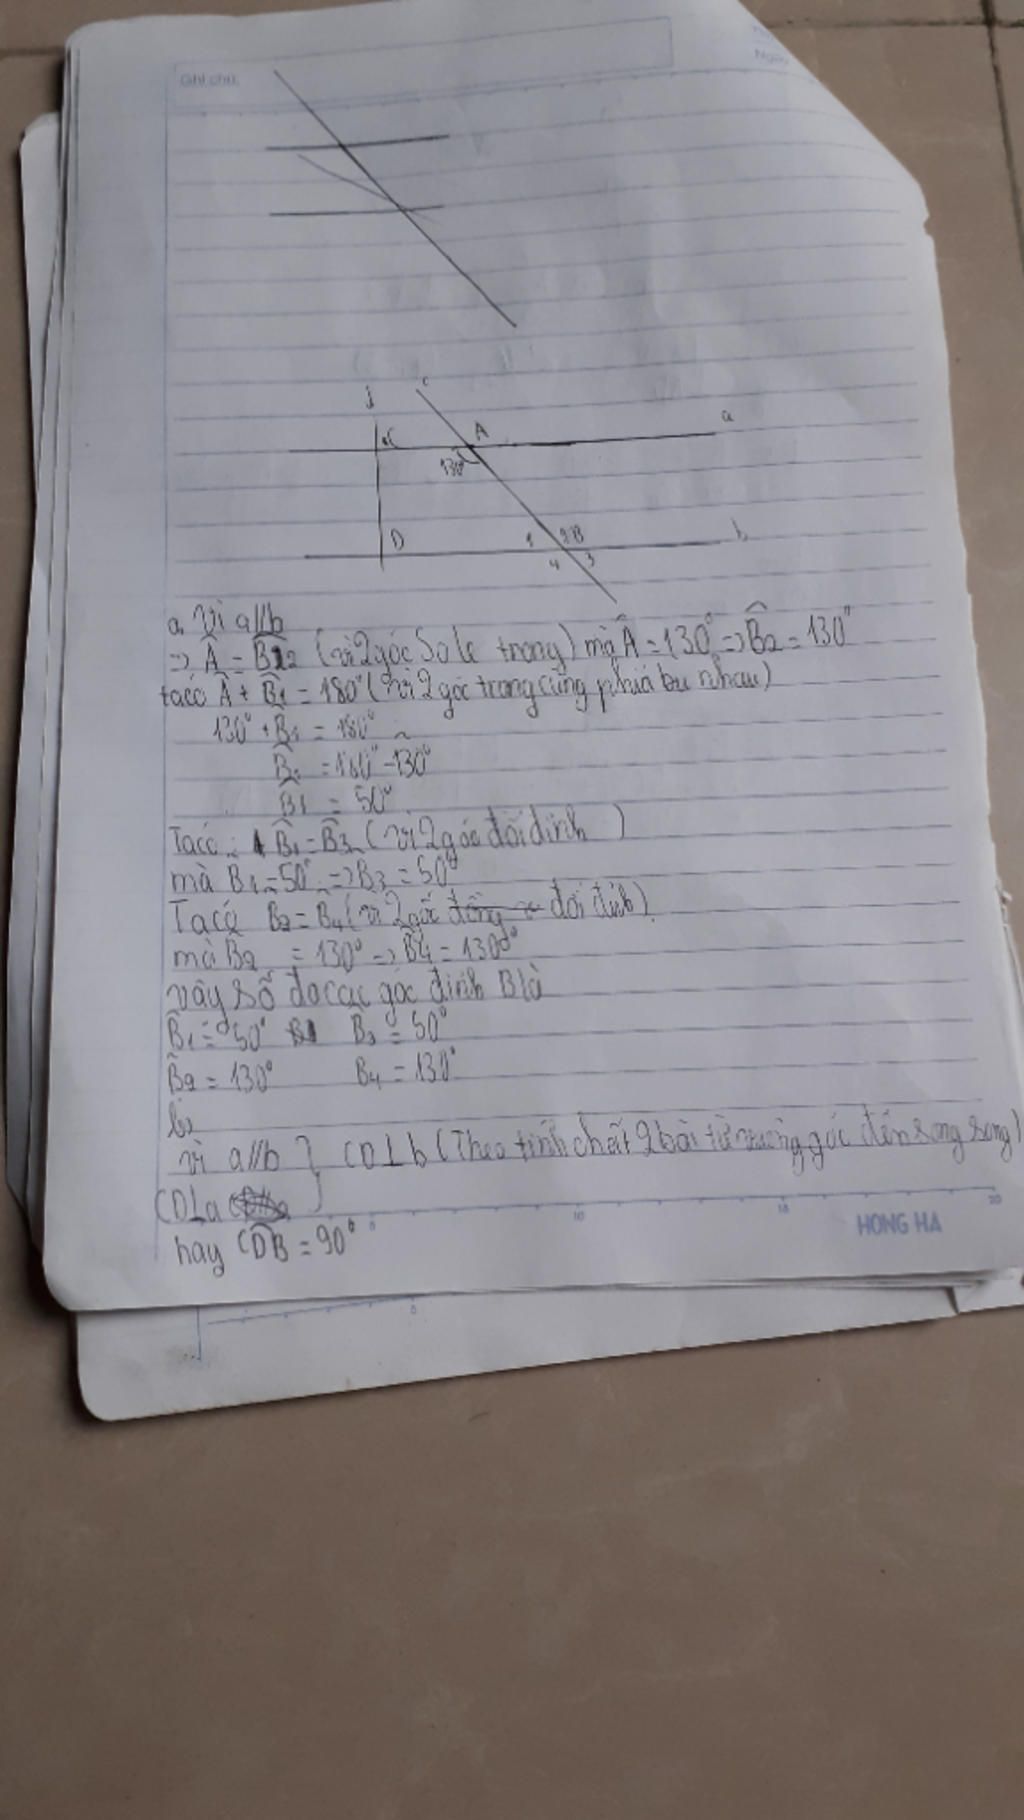 Ghi chú:
Ngày
d
c
C
A
a
130°
D
1
2B
b
4
3
a, Vì a//b
=> Â = B̂2 (vì 2 góc So le trong) mà Â = 130° => B̂2 = 130°
ta có Â + B̂1 = 180° (vì 2 góc trong cùng phía bù nhau)
130° + B̂1 = 180°
B̂1 = 180° - 130°
B̂1 = 50°
Ta có: B̂1 = B̂3 (vì 2 góc đối đỉnh)
mà B1 = 50° => B3 = 50°
Ta có B2 = B̂4 (vì 2 góc đối đỉnh)
mà B2 = 130° => B̂4 = 130°
vậy số đo các góc đỉnh B là
B̂1 = 50° B̂3 = 50°
B̂2 = 130° B4 = 130°
b,
vì a//b } CD⊥b (Theo tính chất 2 bài từ vuông góc đến song song)
CD⊥a
hay CD̂B = 90°
5 10 15 20
HONG HA
5